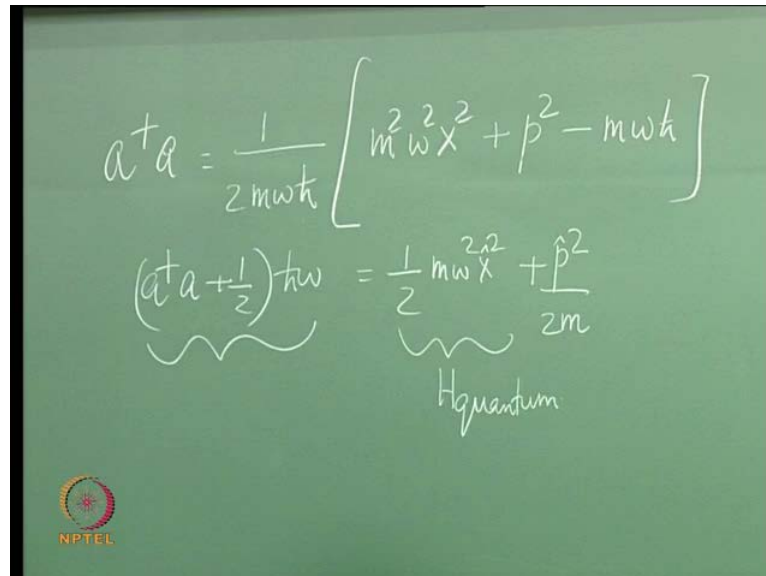 a†a = 1/2mωħ [m²ω²x² + p² − mωħ]
(a†a + 1/2)ħω = 1/2 mω²x̂² + p̂²/2m
Hquantum
NPTEL